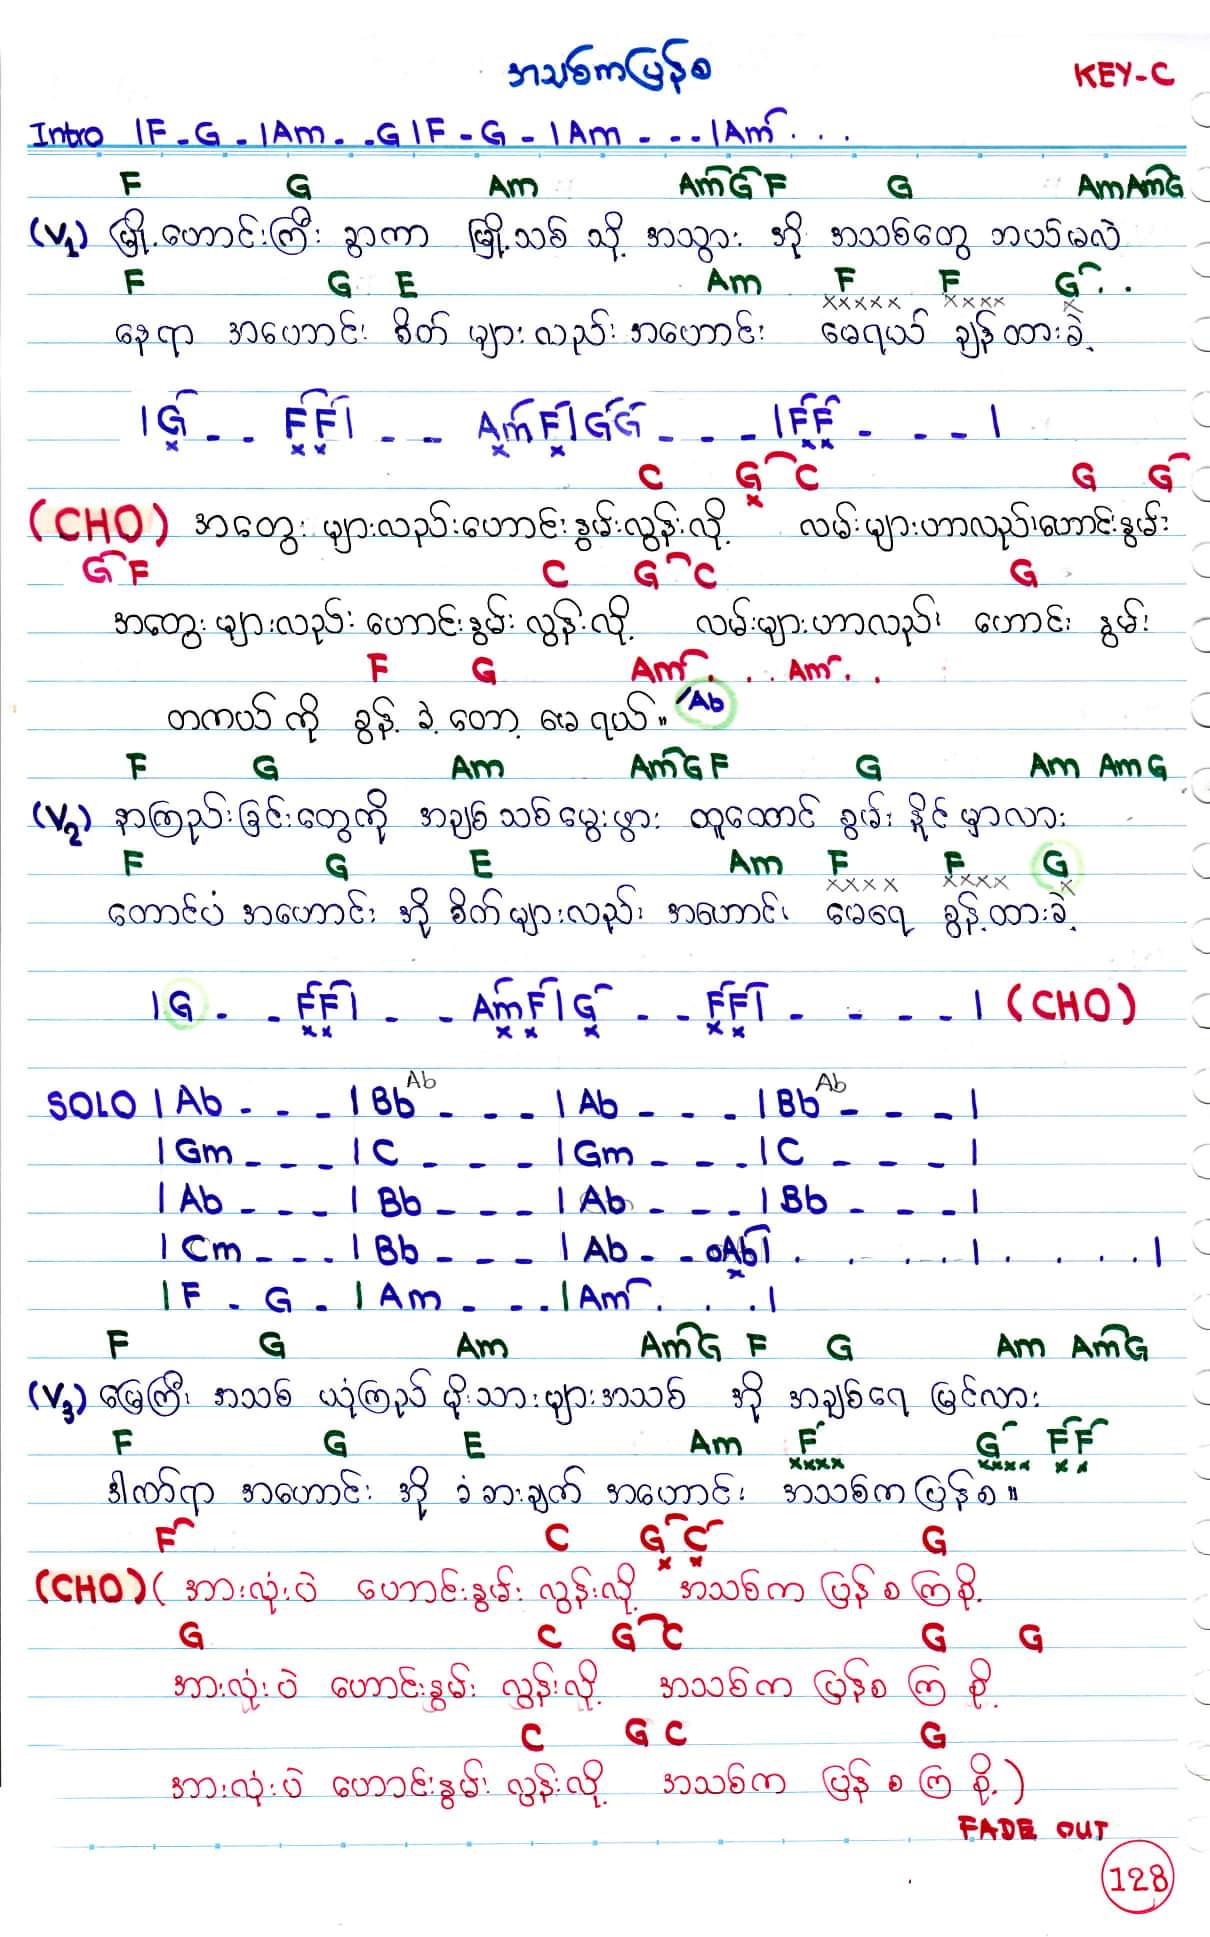 အသစ်ကပြန်စ
KEY-C
Intro |F - G - |Am - - G |F - G - |Am - - - |Am . . .
F G Am Am G F G Am Am G
(V1) မြို့ဟောင်းကြီး ခွာကာ မြို့သစ် သို့ အသွား အို အသစ်တွေ ဘယ်မလဲ
F G E Am F F G . .
xxxxx xxxx x
နေရာ အဟောင်း စိတ် များ လည်း အဟောင်း မေရယ် ချန်ထားခဲ့
|G - - F F| - - Am F|G G - - - |F F - - - - |
x x x x x x x
C G C G G
(CHO) အတွေး များလည်းဟောင်းနွမ်းလွန်းလို့ လမ်းများဟာလည်းဟောင်းနွမ်း
G F C G C G
အတွေး များလည်း ဟောင်းနွမ်း လွန်းလို့ လမ်းများဟာလည်း ဟောင်း နွမ်း
F G Am . . . Am . .
တကယ် ကို ခွန့် ခဲ့ တော့ မေ ရယ်။ Ab
F G Am Am G F G Am Am G
(V2) နာကြည်းခြင်းတွေကို အချစ် သစ် မွေးဖွား ထူထောင် စွမ်း နိုင် မှာလား
F G E Am F F G
xxxx xxxx x
တောင်ပံ အဟောင်း အို စိတ်များလည်း အဟောင်း မေရေ ခွန့်ထားခဲ့
|G - - F F| - - Am F|G - - F F| - - - - | (CHO)
x x x x x x x
Ab Ab
SOLO |Ab - - - |Bb - - - |Ab - - - |Bb - - - |
|Gm - - - |C - - - |Gm - - - |C - - - |
|Ab - - - |Bb - - - |Ab - - - |Bb - - - |
|Cm - - - |Bb - - - |Ab - - Ab| . . . . | . . . . |
|F - G - |Am - - - |Am . . . |
F G Am Am G F G Am Am G
(V3) မြေကြီး အသစ် ယုံကြည် မိုးသားများအသစ် အို အချစ်ရေ မြင်လား
F G E Am F G F F
xxxx xxxx x x
ဒါဏ်ရာ အဟောင်း အို ခံစားချက် အဟောင်း အသစ်က ပြန် စ။
F C G C G
x x
(CHO) ( အားလုံးပဲ ဟောင်းနွမ်း လွန်းလို့ အသစ်က ပြန် စ ကြ စို့
G C G C G G
အားလုံးပဲ ဟောင်းနွမ်း လွန်းလို့ အသစ်က ပြန်စ ကြ စို့
C G C G
အားလုံးပဲ ဟောင်းနွမ်း လွန်းလို့ အသစ်က ပြန် စ ကြ စို့ )
FADE OUT
128